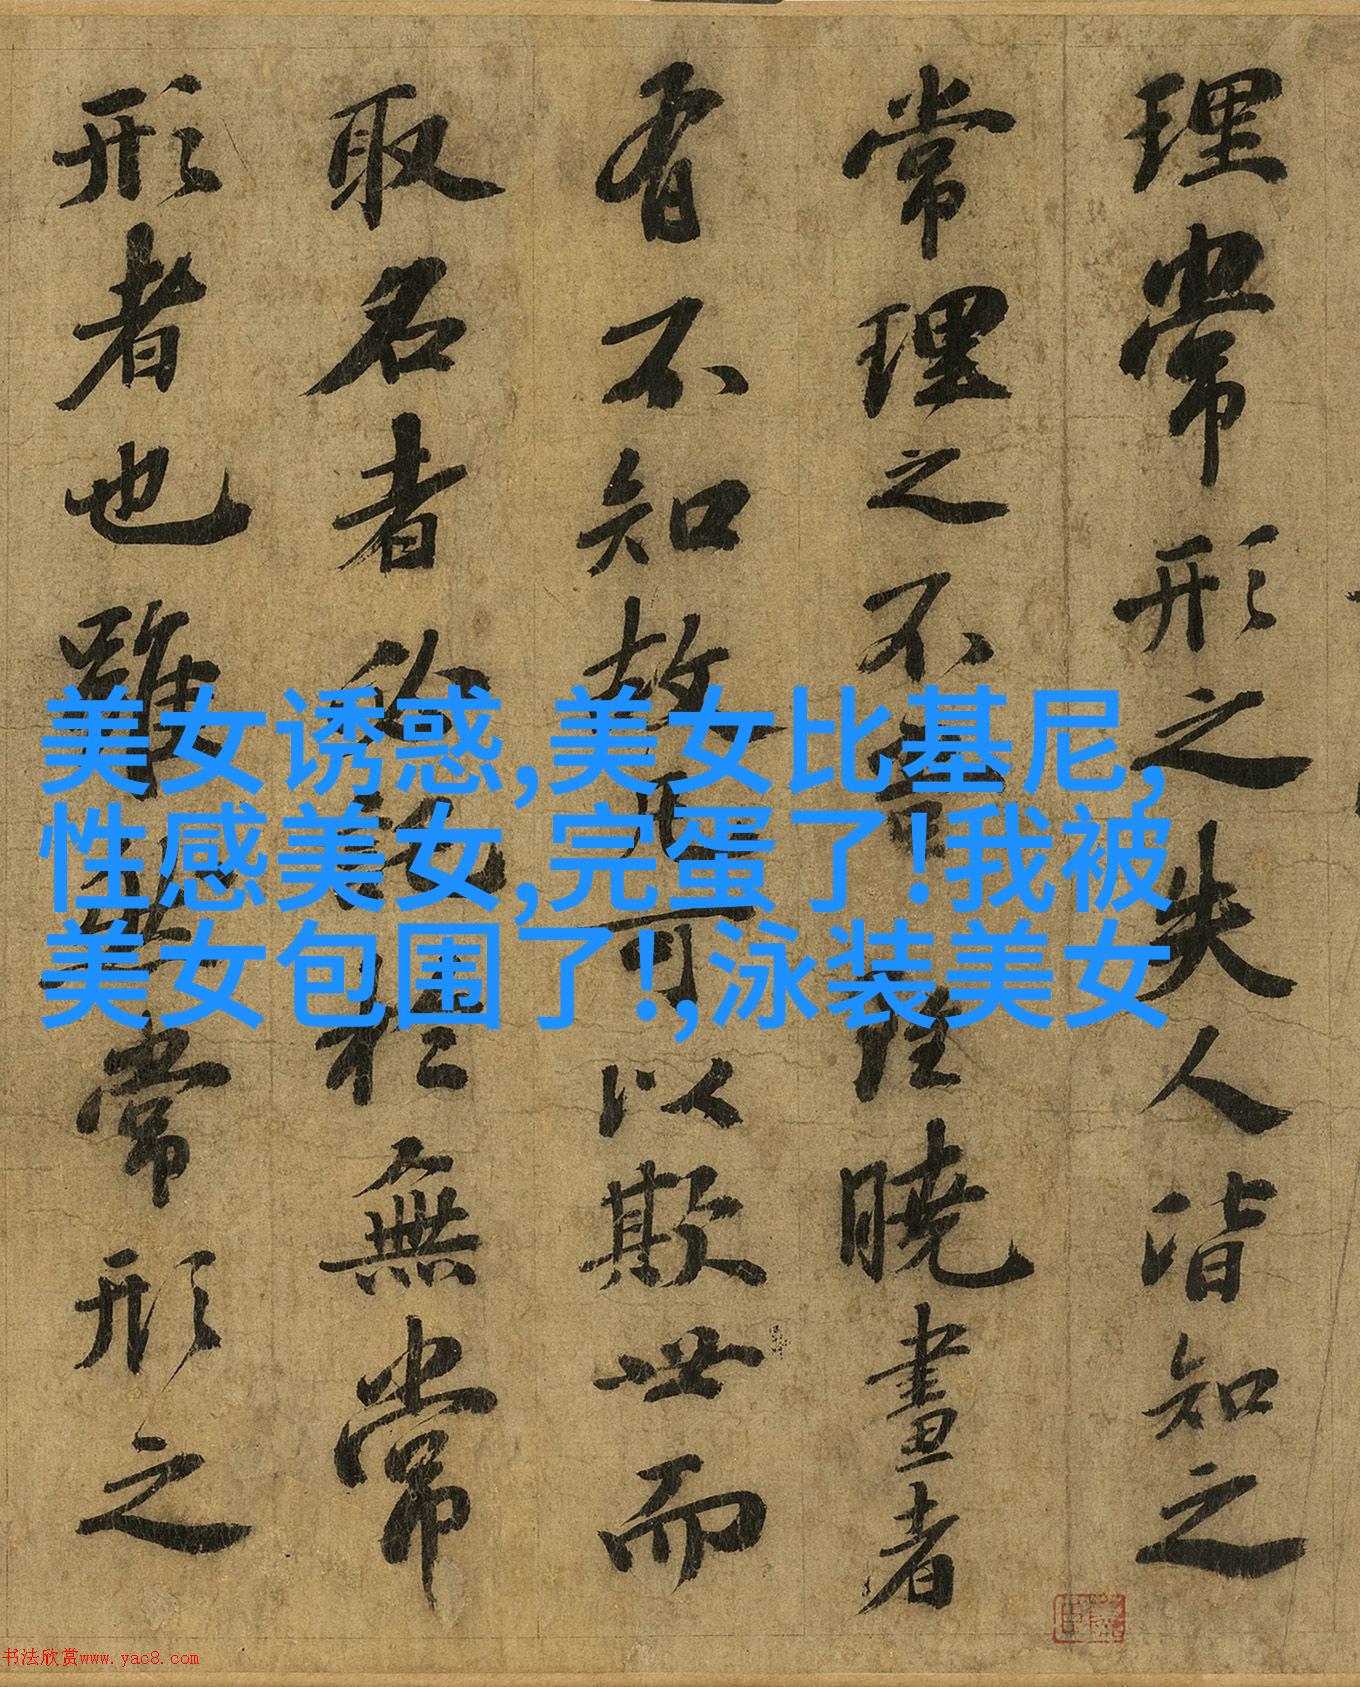 理常形之失人皆知之
常理之不當雖曉畫者
有不知故凡可以欺世而
取名者必託於無常
形者也雖常形之
美女诱惑,美女比基尼,
性感美女,完蛋了!我被
美女包围了!,泳装美女
书法欣赏www.yac8.com